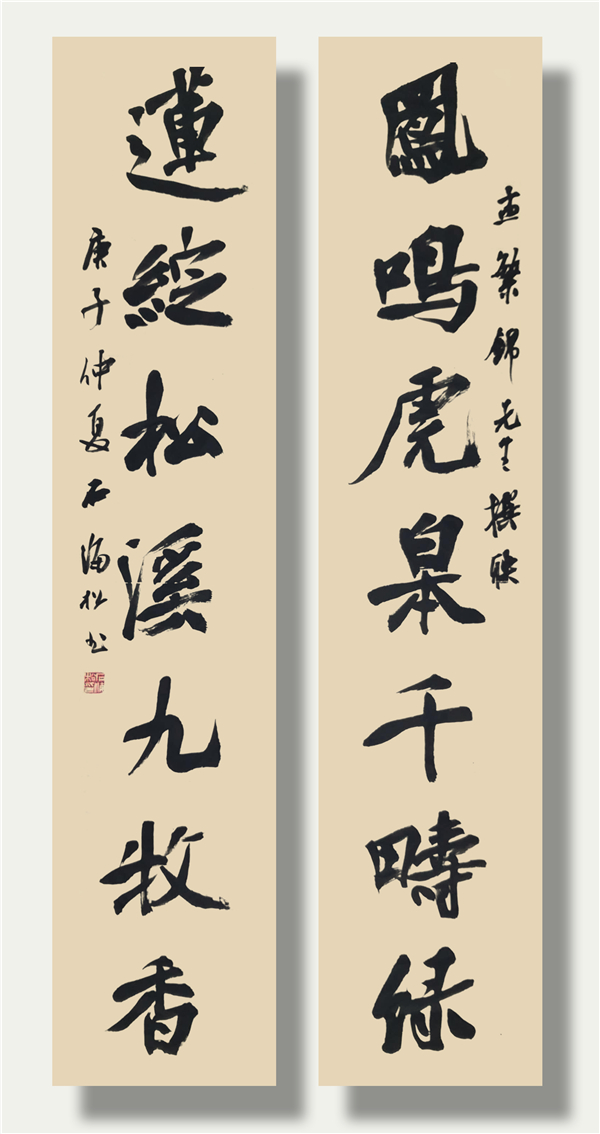 鳳鳴虎皋千疇綠
錦先生撰联
蓮綻松溪九牧香
庚子仲夏石海松书